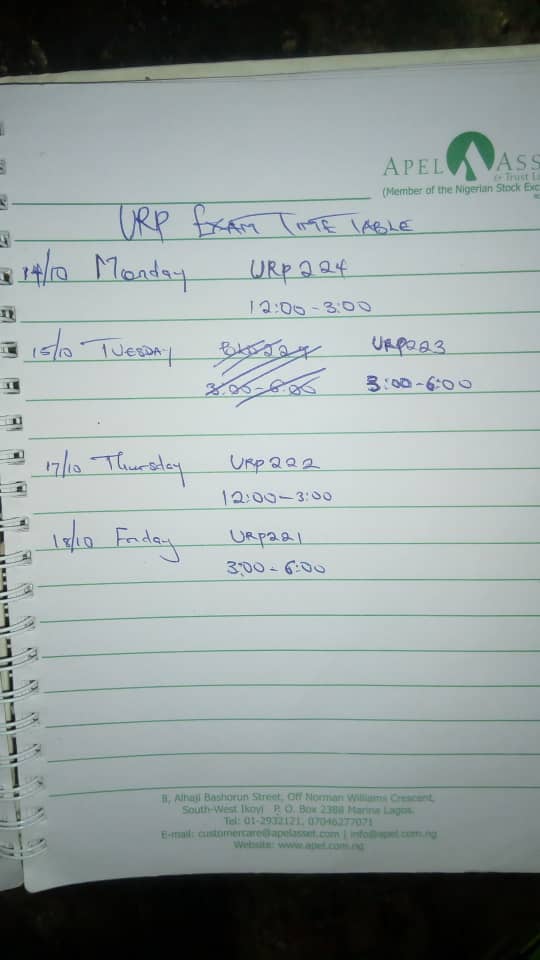 APEL ASS
& Trust L
(Member of the Nigerian Stock Exc
URP EXAM TIME TABLE
14/10 Monday URP 224
12:00 - 3:00
15/10 TUESDAY URP223
3:00 - 6:00 3:00 - 6:00
17/10 Thursday URP 222
12:00 - 3:00
18/10 Friday URP221
3:00 - 6:00
8, Alhaji Bashorun Street, Off Norman Williams Crescent,
South-West Ikoyi P. O. Box 2388 Marina Lagos.
Tel: 01-2932121, 07046277071
E-mail: customercare@apelasset.com | info@apel.com.ng
Website: www.apel.com.ng